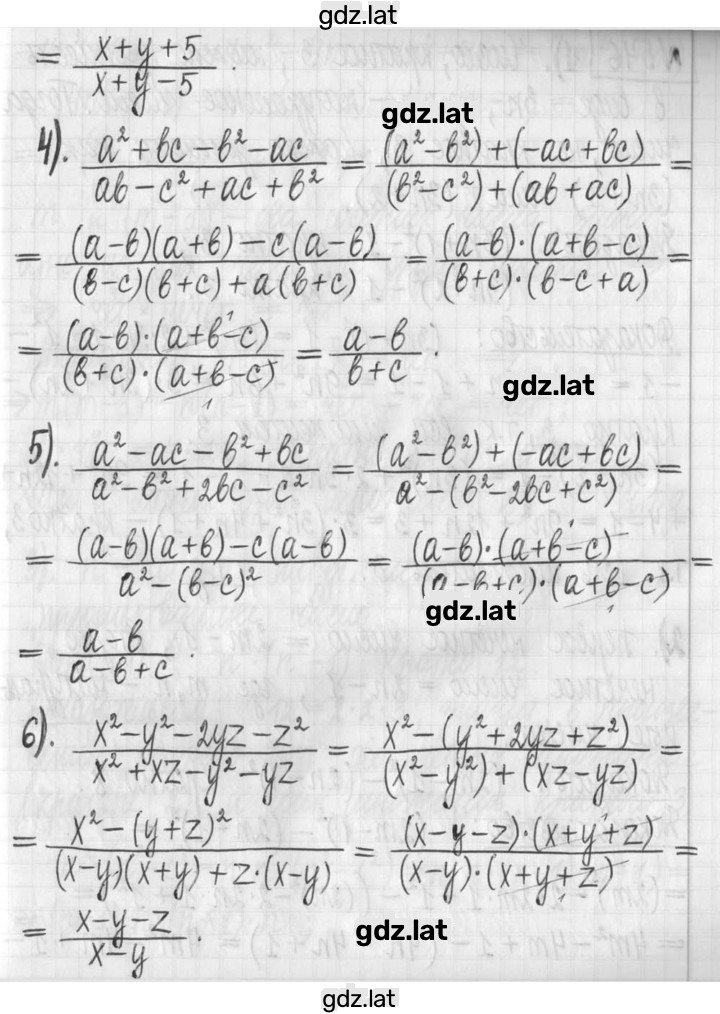 gdz.lat
= (x+y+5)/(x+y-5).
gdz.lat
4). (a²+вc-в²-ac)/(aв-c²+ac+в²) = ((a²-в²)+(-ac+вc))/((в²-c²)+(aв+ac)) =
= ((a-в)(a+в)-c(a-в))/((в-c)(в+c)+a(в+c)) = ((a-в)·(a+в-c))/((в+c)·(в-c+a)) =
= ((a-в)·(a+в-c))/((в+c)·(a+в-c)) = (a-в)/(в+c).
gdz.lat
5). (a²-ac-в²+вc)/(a²-в²+2вc-c²) = ((a²-в²)+(-ac+вc))/(a²-(в²-2вc+c²)) =
= ((a-в)(a+в)-c(a-в))/(a²-(в-c)²) = ((a-в)·(a+в-c))/((a-в+c)·(a+в-c)) =
gdz.lat
= (a-в)/(a-в+c).
6). (x²-y²-2yz-z²)/(x²+xz-y²-yz) = (x²-(y²+2yz+z²))/((x²-y²)+(xz-yz)) =
= (x²-(y+z)²)/((x-y)(x+y)+z·(x-y)) = ((x-y-z)·(x+y+z))/((x-y)·(x+y+z)) =
= (x-y-z)/(x-y).
gdz.lat
gdz.lat